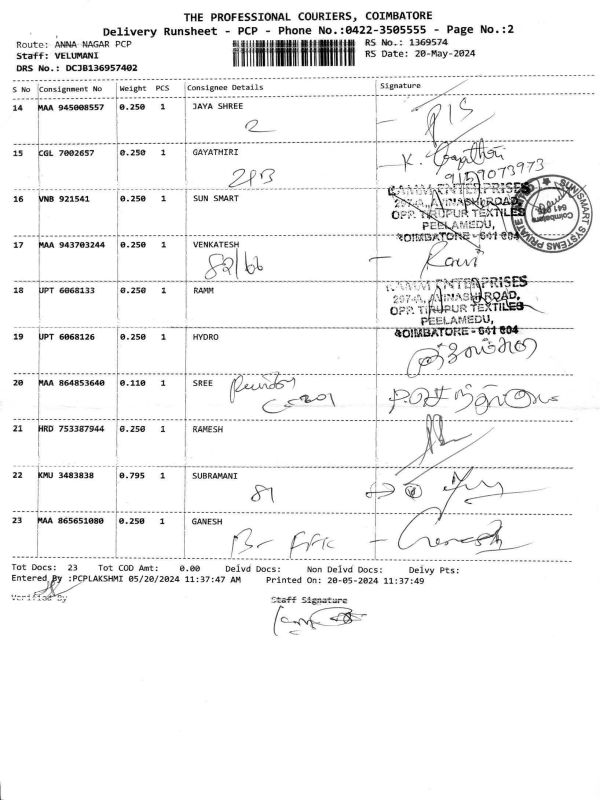 THE PROFESSIONAL COURIERS, COIMBATORE
Delivery Runsheet - PCP - Phone No.:0422-3505555 - Page No.:2
Route: ANNA NAGAR PCP
RS No.: 1369574
Staff: VELUMANI
RS Date: 20-May-2024
DRS No.: DCJB136957402
S No Consignment No Weight PCS Consignee Details Signature
14 MAA 945008557 0.250 1 JAYA SHREE
2
15 CGL 7002657 0.250 1 GAYATHIRI
K. Gayathiri
9159073973
16 VNB 921541 0.250 1 SUN SMART
RAMM ENTERPRISES
297-A, AVINASHI ROAD,
OPP. TIRUPUR TEXTILES
PEELAMEDU,
COIMBATORE - 641 004
SUN SMART SYSTEMS PRIVATE
Coimbatore
17 MAA 943703244 0.250 1 VENKATESH
82/66
Ravi
18 UPT 6068133 0.250 1 RAMM
RAMM ENTERPRISES
297-A, AVINASHI ROAD,
OPP. TIRUPUR TEXTILES
PEELAMEDU,
COIMBATORE - 641 004
19 UPT 6068126 0.250 1 HYDRO
20 MAA 864853640 0.110 1 SREE
21 HRD 753387944 0.250 1 RAMESH
22 KMU 3483838 0.795 1 SUBRAMANI
81
23 MAA 865651080 0.250 1 GANESH
Ganesh
Tot Docs: 23 Tot COD Amt: 0.00 Delvd Docs: Non Delvd Docs: Delvy Pts:
Entered By :PCPLAKSHMI 05/20/2024 11:37:47 AM Printed On: 20-05-2024 11:37:49
Verified By
Staff Signature